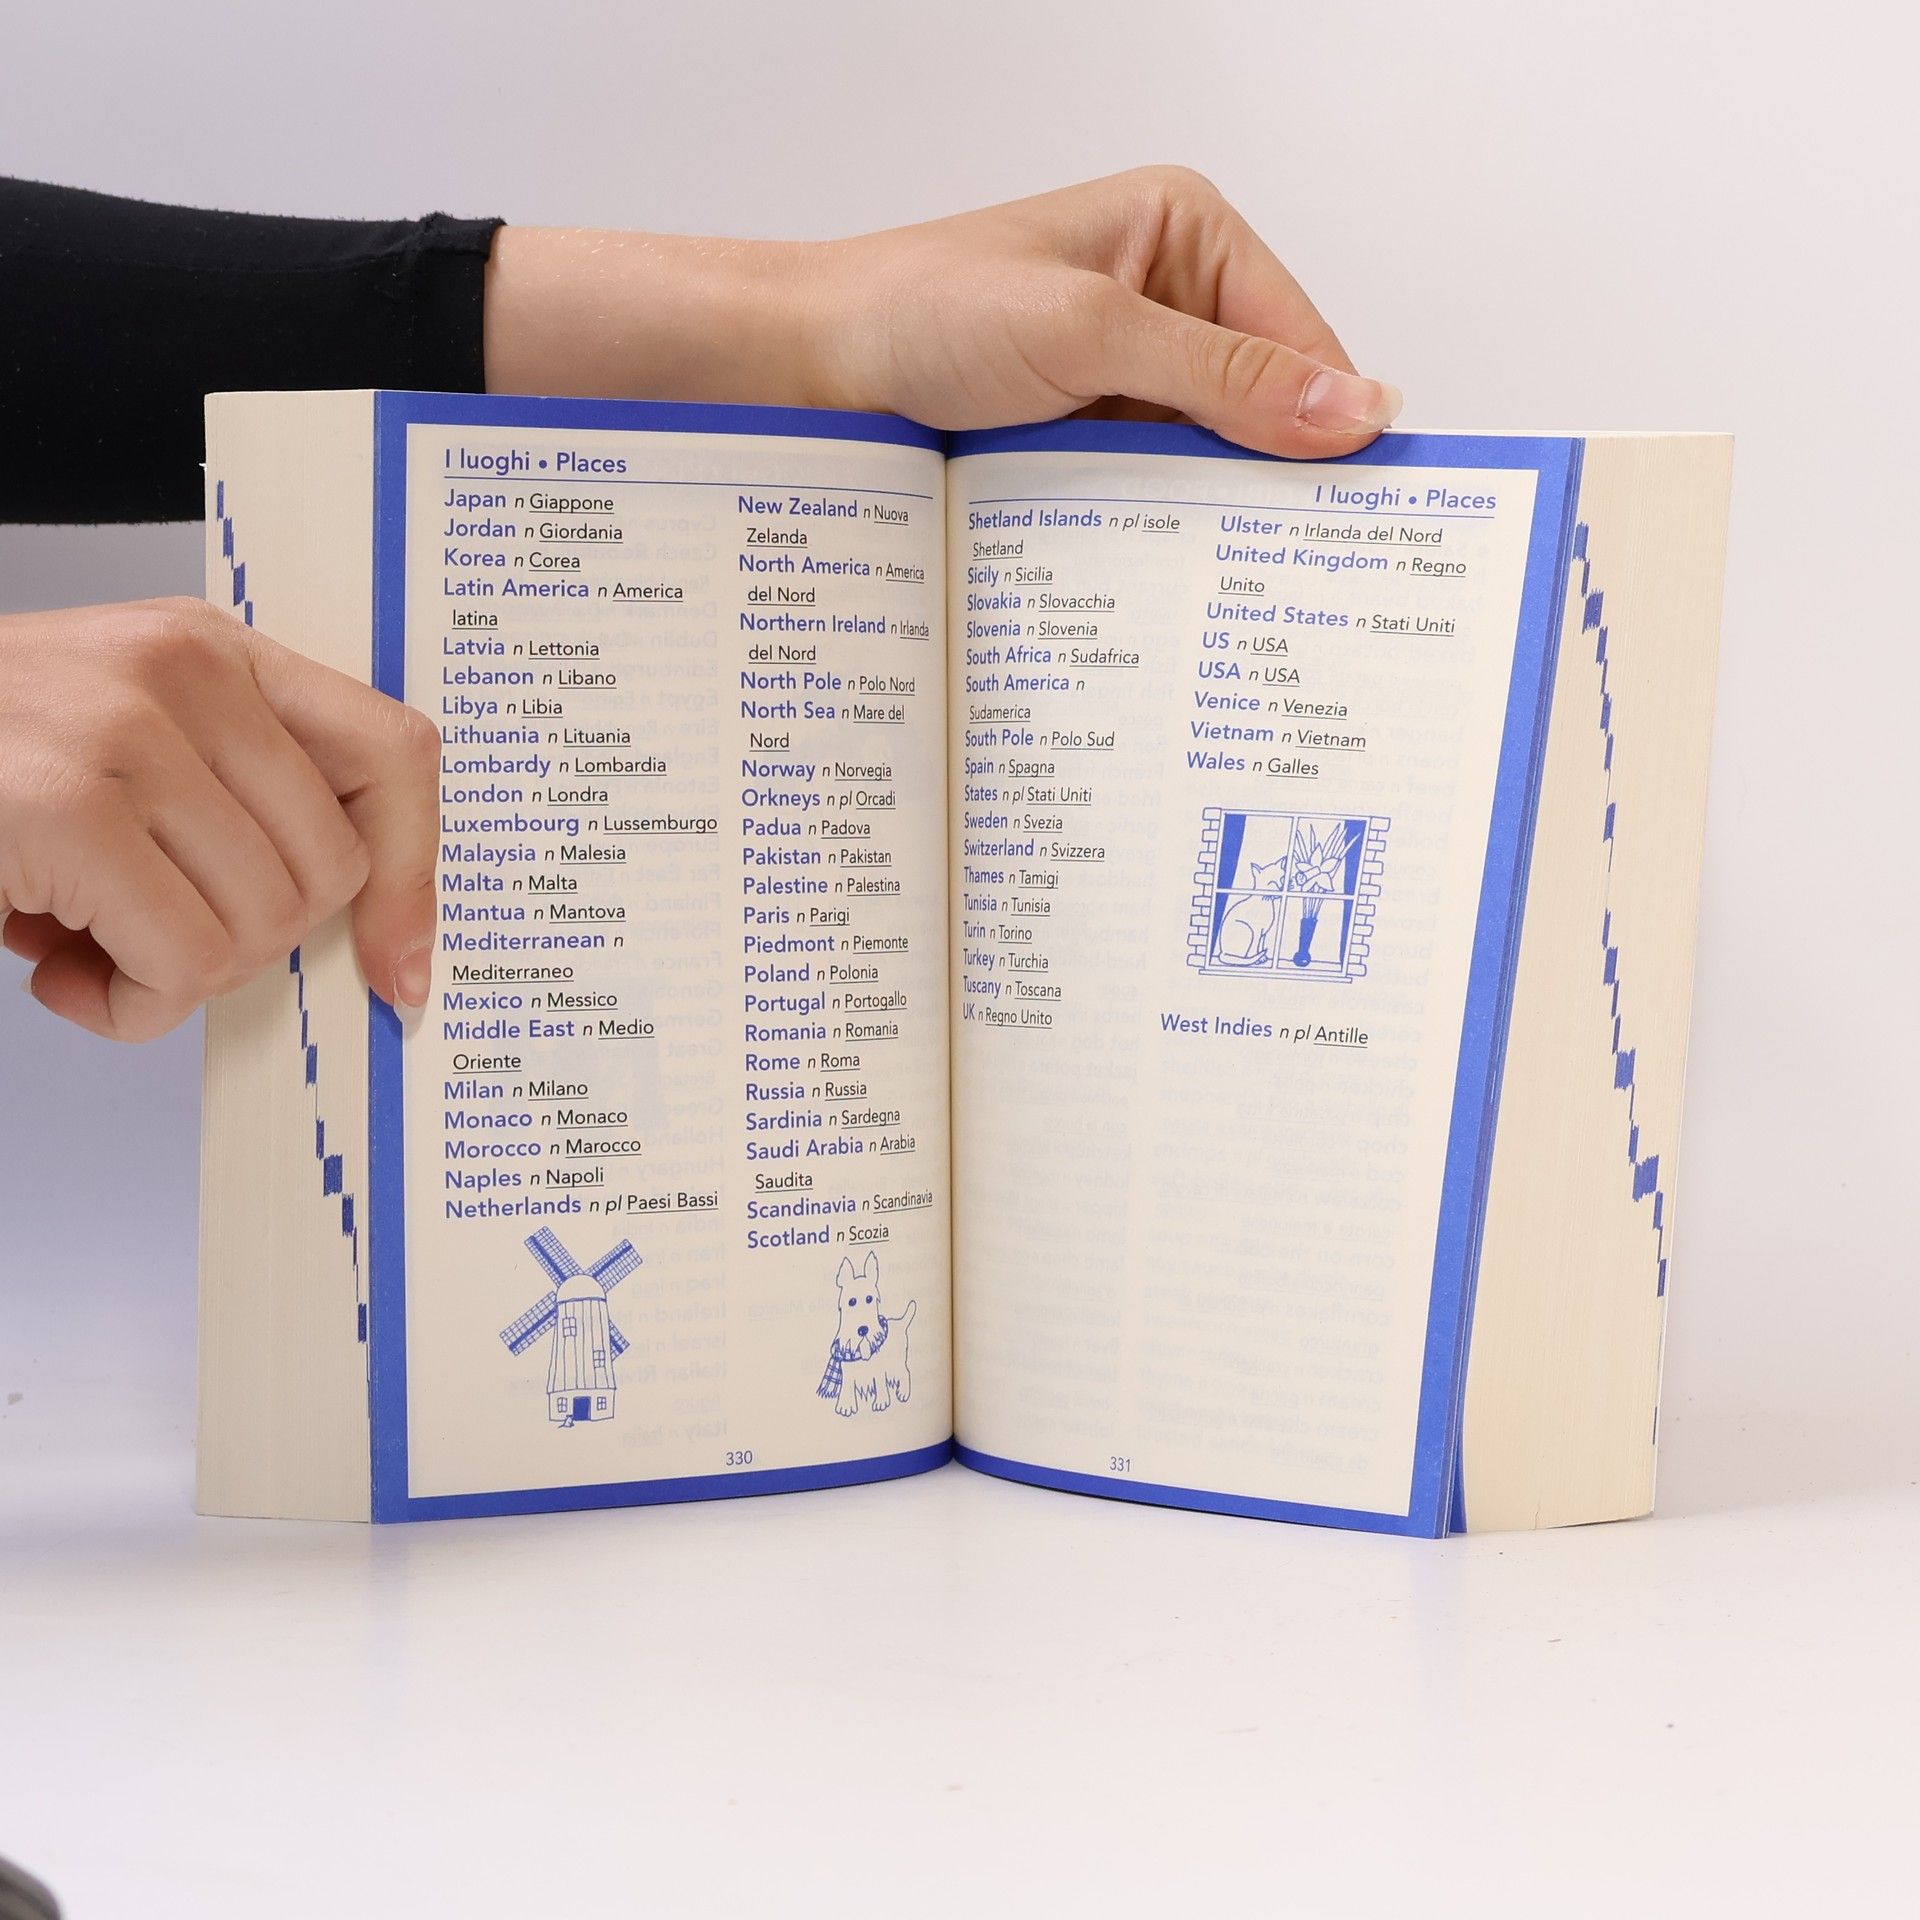 I luoghi • Places
Japan n Giappone
Jordan n Giordania
Korea n Corea
Latin America n America
latina
Latvia n Lettonia
Lebanon n Libano
Libya n Libia
Lithuania n Lituania
Lombardy n Lombardia
London n Londra
Luxembourg n Lussemburgo
Malaysia n Malesia
Malta n Malta
Mantua n Mantova
Mediterranean n
Mediterraneo
Mexico n Messico
Middle East n Medio
Oriente
Milan n Milano
Monaco n Monaco
Morocco n Marocco
Naples n Napoli
Netherlands n pl Paesi Bassi
New Zealand n Nuova
Zelanda
North America n America
del Nord
Northern Ireland n Irlanda
del Nord
North Pole n Polo Nord
North Sea n Mare del
Nord
Norway n Norvegia
Orkneys n pl Orcadi
Padua n Padova
Pakistan n Pakistan
Palestine n Palestina
Paris n Parigi
Piedmont n Piemonte
Poland n Polonia
Portugal n Portogallo
Romania n Romania
Rome n Roma
Russia n Russia
Sardinia n Sardegna
Saudi Arabia n Arabia
Saudita
Scandinavia n Scandinavia
Scotland n Scozia
330
I luoghi • Places
Shetland Islands n pl isole
Shetland
Sicily n Sicilia
Slovakia n Slovacchia
Slovenia n Slovenia
South Africa n Sudafrica
South America n
Sudamerica
South Pole n Polo Sud
Spain n Spagna
States n pl Stati Uniti
Sweden n Svezia
Switzerland n Svizzera
Thames n Tamigi
Tunisia n Tunisia
Turin n Torino
Turkey n Turchia
Tuscany n Toscana
UK n Regno Unito
Ulster n Irlanda del Nord
United Kingdom n Regno
Unito
United States n Stati Uniti
US n USA
USA n USA
Venice n Venezia
Vietnam n Vietnam
Wales n Galles
West Indies n pl Antille
331